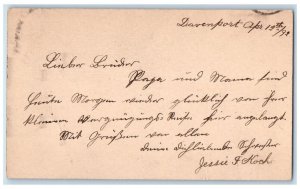 Davenport Apr 12th/92
Lieber Bruder
Papa und Mama sind
heute Morgen wieder glücklich von ihrer
kleinen Vergnügungs Reise hier angelangt.
Mit Grüßen von allen
deine dichliebende Schwester
Jessie F Koch